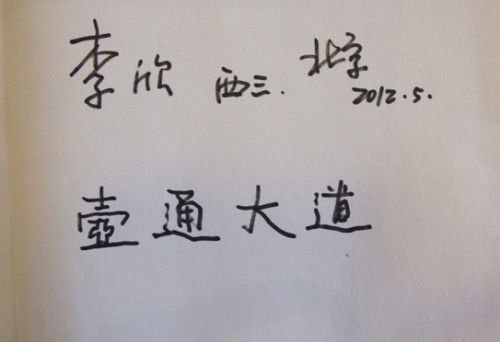 李欣 西三. 北京
2012.5.
壶通大道